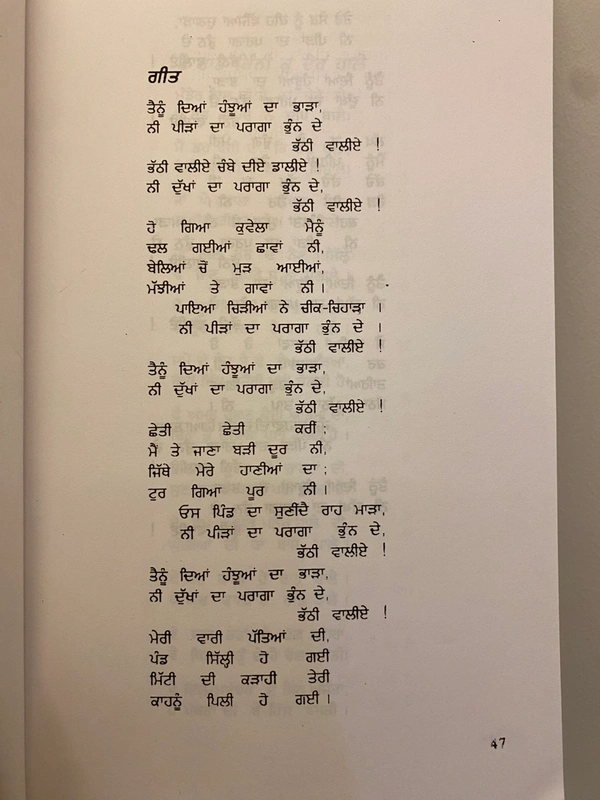 ਗੀਤ
ਤੈਨੂੰ ਦਿਆਂ ਹੰਝੂਆਂ ਦਾ ਭਾੜਾ,
ਨੀ ਪੀੜਾਂ ਦਾ ਪਰਾਗਾ ਭੁੰਨ ਦੇ
ਭੱਠੀ ਵਾਲੀਏ !
ਭੱਠੀ ਵਾਲੀਏ ਚੰਬੇ ਦੀਏ ਡਾਲੀਏ !
ਨੀ ਦੁੱਖਾਂ ਦਾ ਪਰਾਗਾ ਭੁੰਨ ਦੇ,
ਭੱਠੀ ਵਾਲੀਏ !
ਹੋ ਗਿਆ ਕੁਵੇਲਾ ਮੈਨੂੰ
ਢਲ ਗਈਆਂ ਛਾਵਾਂ ਨੀ,
ਬੇਲਿਆਂ ਚੋਂ ਮੁੜ ਆਈਆਂ,
ਮੱਝੀਆਂ ਤੇ ਗਾਵਾਂ ਨੀ ।
ਪਾਇਆ ਚਿੜੀਆਂ ਨੇ ਚੀਕ-ਚਿਹਾੜਾ ।
ਨੀ ਪੀੜਾਂ ਦਾ ਪਰਾਗਾ ਭੁੰਨ ਦੇ ।
ਭੱਠੀ ਵਾਲੀਏ !
ਤੈਨੂੰ ਦਿਆਂ ਹੰਝੂਆਂ ਦਾ ਭਾੜਾ,
ਨੀ ਦੁੱਖਾਂ ਦਾ ਪਰਾਗਾ ਭੁੰਨ ਦੇ,
ਭੱਠੀ ਵਾਲੀਏ !
ਛੇਤੀ ਛੇਤੀ ਕਰੀਂ ;
ਮੈਂ ਤੇ ਜਾਣਾ ਬੜੀ ਦੂਰ ਨੀ,
ਜਿੱਥੇ ਮੇਰੇ ਹਾਣੀਆਂ ਦਾ ;
ਟੁਰ ਗਿਆ ਪੂਰ ਨੀ ।
ਓਸ ਪਿੰਡ ਦਾ ਸੁਣੀਂਦੈ ਰਾਹ ਮਾੜਾ,
ਨੀ ਪੀੜਾਂ ਦਾ ਪਰਾਗਾ ਭੁੰਨ ਦੇ,
ਭੱਠੀ ਵਾਲੀਏ !
ਤੈਨੂੰ ਦਿਆਂ ਹੰਝੂਆਂ ਦਾ ਭਾੜਾ,
ਨੀ ਦੁੱਖਾਂ ਦਾ ਪਰਾਗਾ ਭੁੰਨ ਦੇ,
ਭੱਠੀ ਵਾਲੀਏ !
ਮੇਰੀ ਵਾਰੀ ਪੱਤਿਆਂ ਦੀ,
ਪੰਡ ਸਿੱਲ੍ਹੀ ਹੋ ਗਈ
ਮਿੱਟੀ ਦੀ ਕੜਾਹੀ ਤੇਰੀ
ਕਾਹਨੂੰ ਪਿਲੀ ਹੋ ਗਈ ।
47